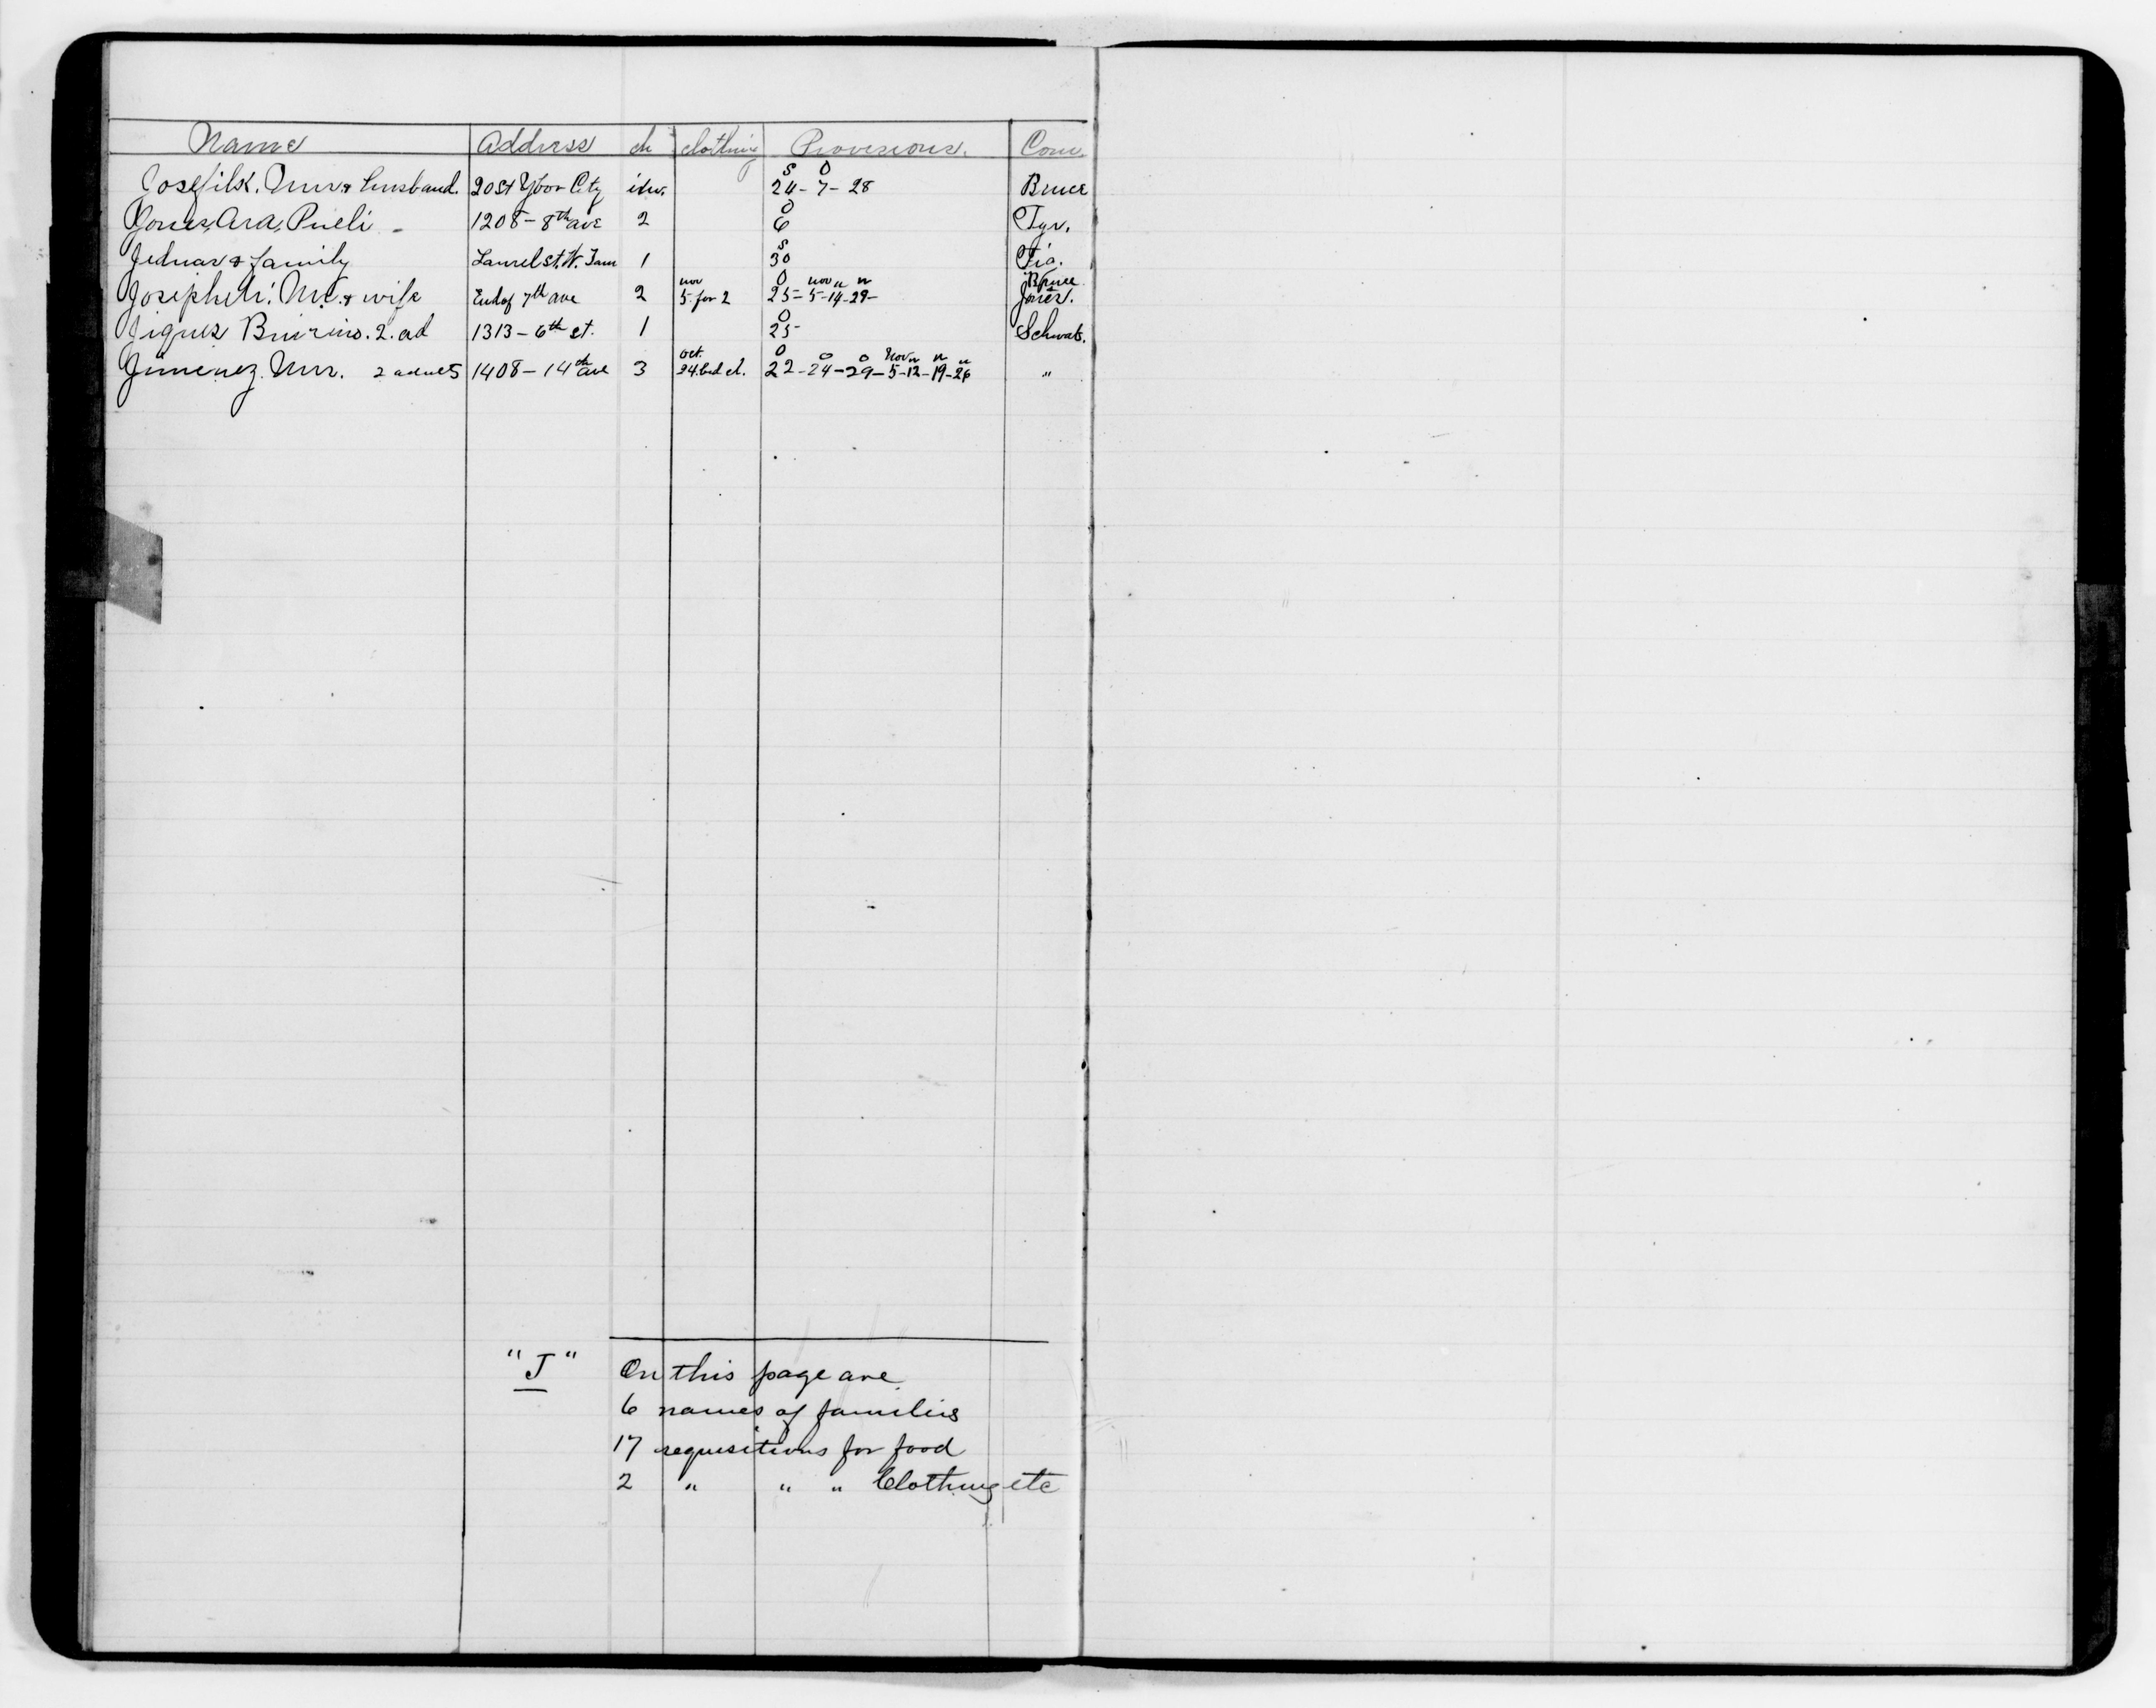 Name Address ch clothing Provisions. Com.
S O
Josefils. Mrs & husband. 20 St Ybor City 24 - 7 - 28 Bruce
O
Jones, Ara, Pueli - 1208 - 8th ave 2 6 Tyr.
S
& family Laurel St. W. Tam 1 30 Fia.
nov O nov " " Bruce
Mr. & wife End of 7th ave 2 5 for 2 25 - 5 - 14 - 29 - Jones.
O
2. ad 1313 - 6th st. 1 25 - Schwab.
Oct. O O O Nov " " "
Jimenez. Mrs. 2 adults 1408 - 14th ave 3 24 bed cl. 22 - 24 - 29 - 5 - 12 - 19 - 26 "
"J" On this page are
6 names of families
17 requisitions for food
2 " " " Clothing etc